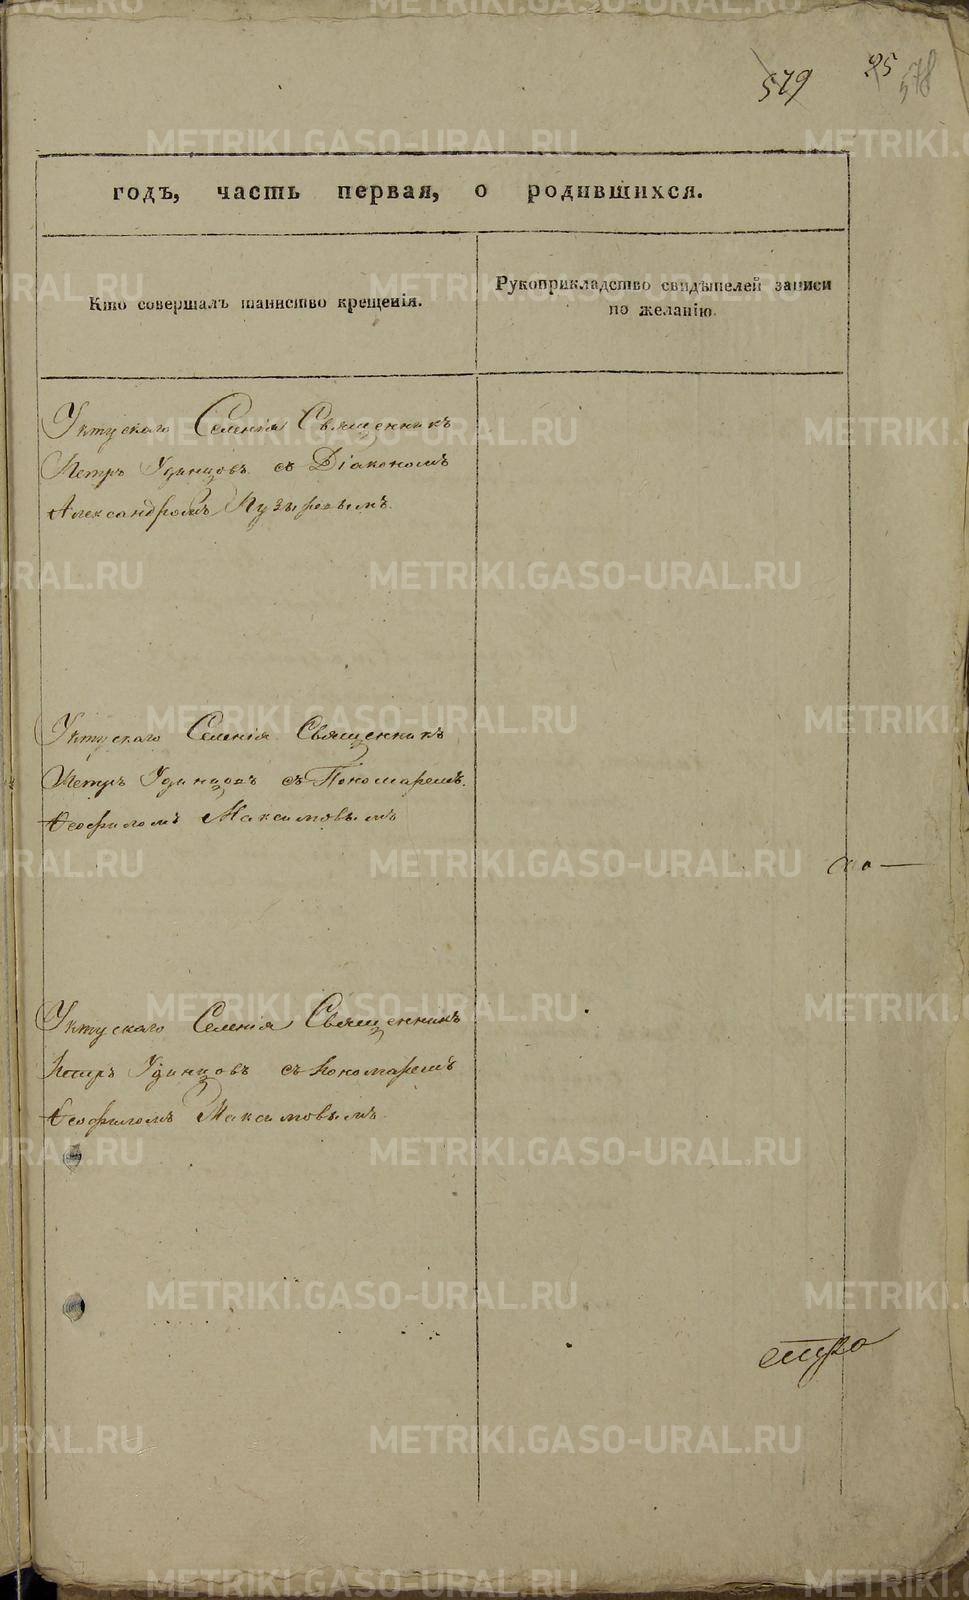 579 25 578
годъ, часть первая, о родившихся.
Кто совершалъ таинство крещенія.
Рукоприкладство свидѣтелей записи
по желанію.
Уктускаго Селенія Священникъ
Петръ Удинцовъ съ Діакономъ
Александромъ Пузыревымъ.
Уктускаго Селенія Священникъ
Петръ Удинцовъ съ Пономаремъ
Ѳеофиломъ Максимовымъ
Уктускаго Селенія Священникъ
Петръ Удинцовъ съ Пономаремъ
Ѳеофиломъ Максимовымъ
METRIKI.GASO-URAL.RU